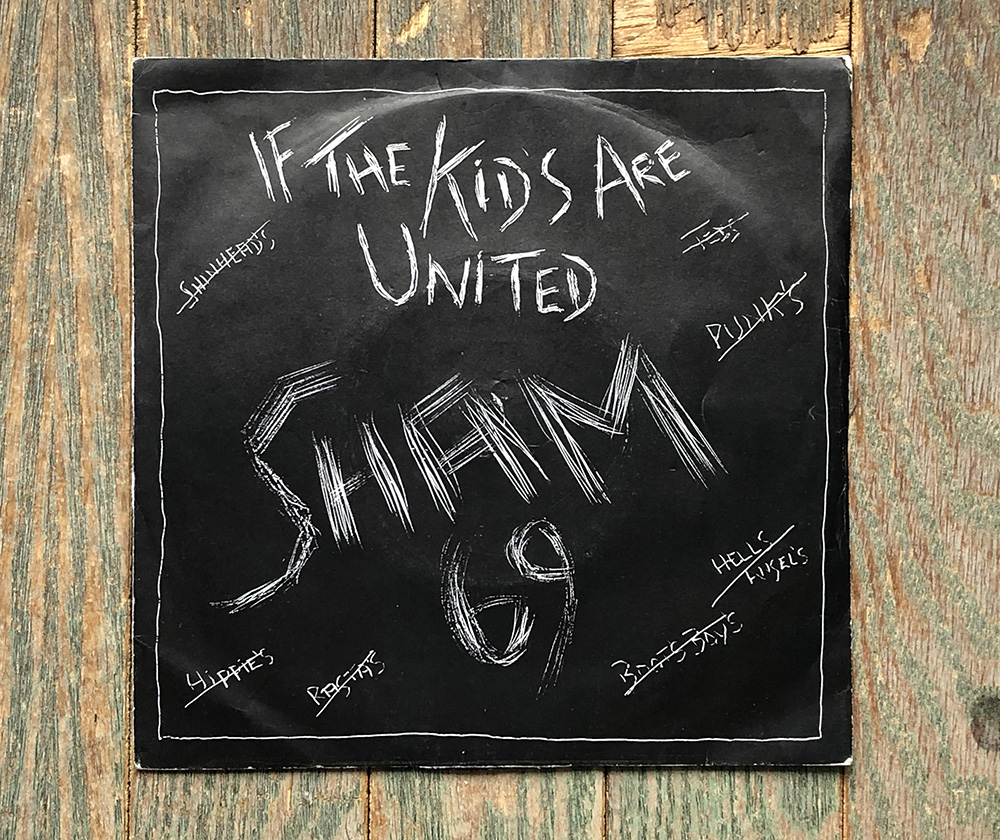 IF THE KID'S ARE
UNITED
SKINHEAD'S
TED'S
PUNK'S
SHAM
69
HELLS
ANGEL'S
HIPPIE'S
RASTA'S
BOOTS BOY'S